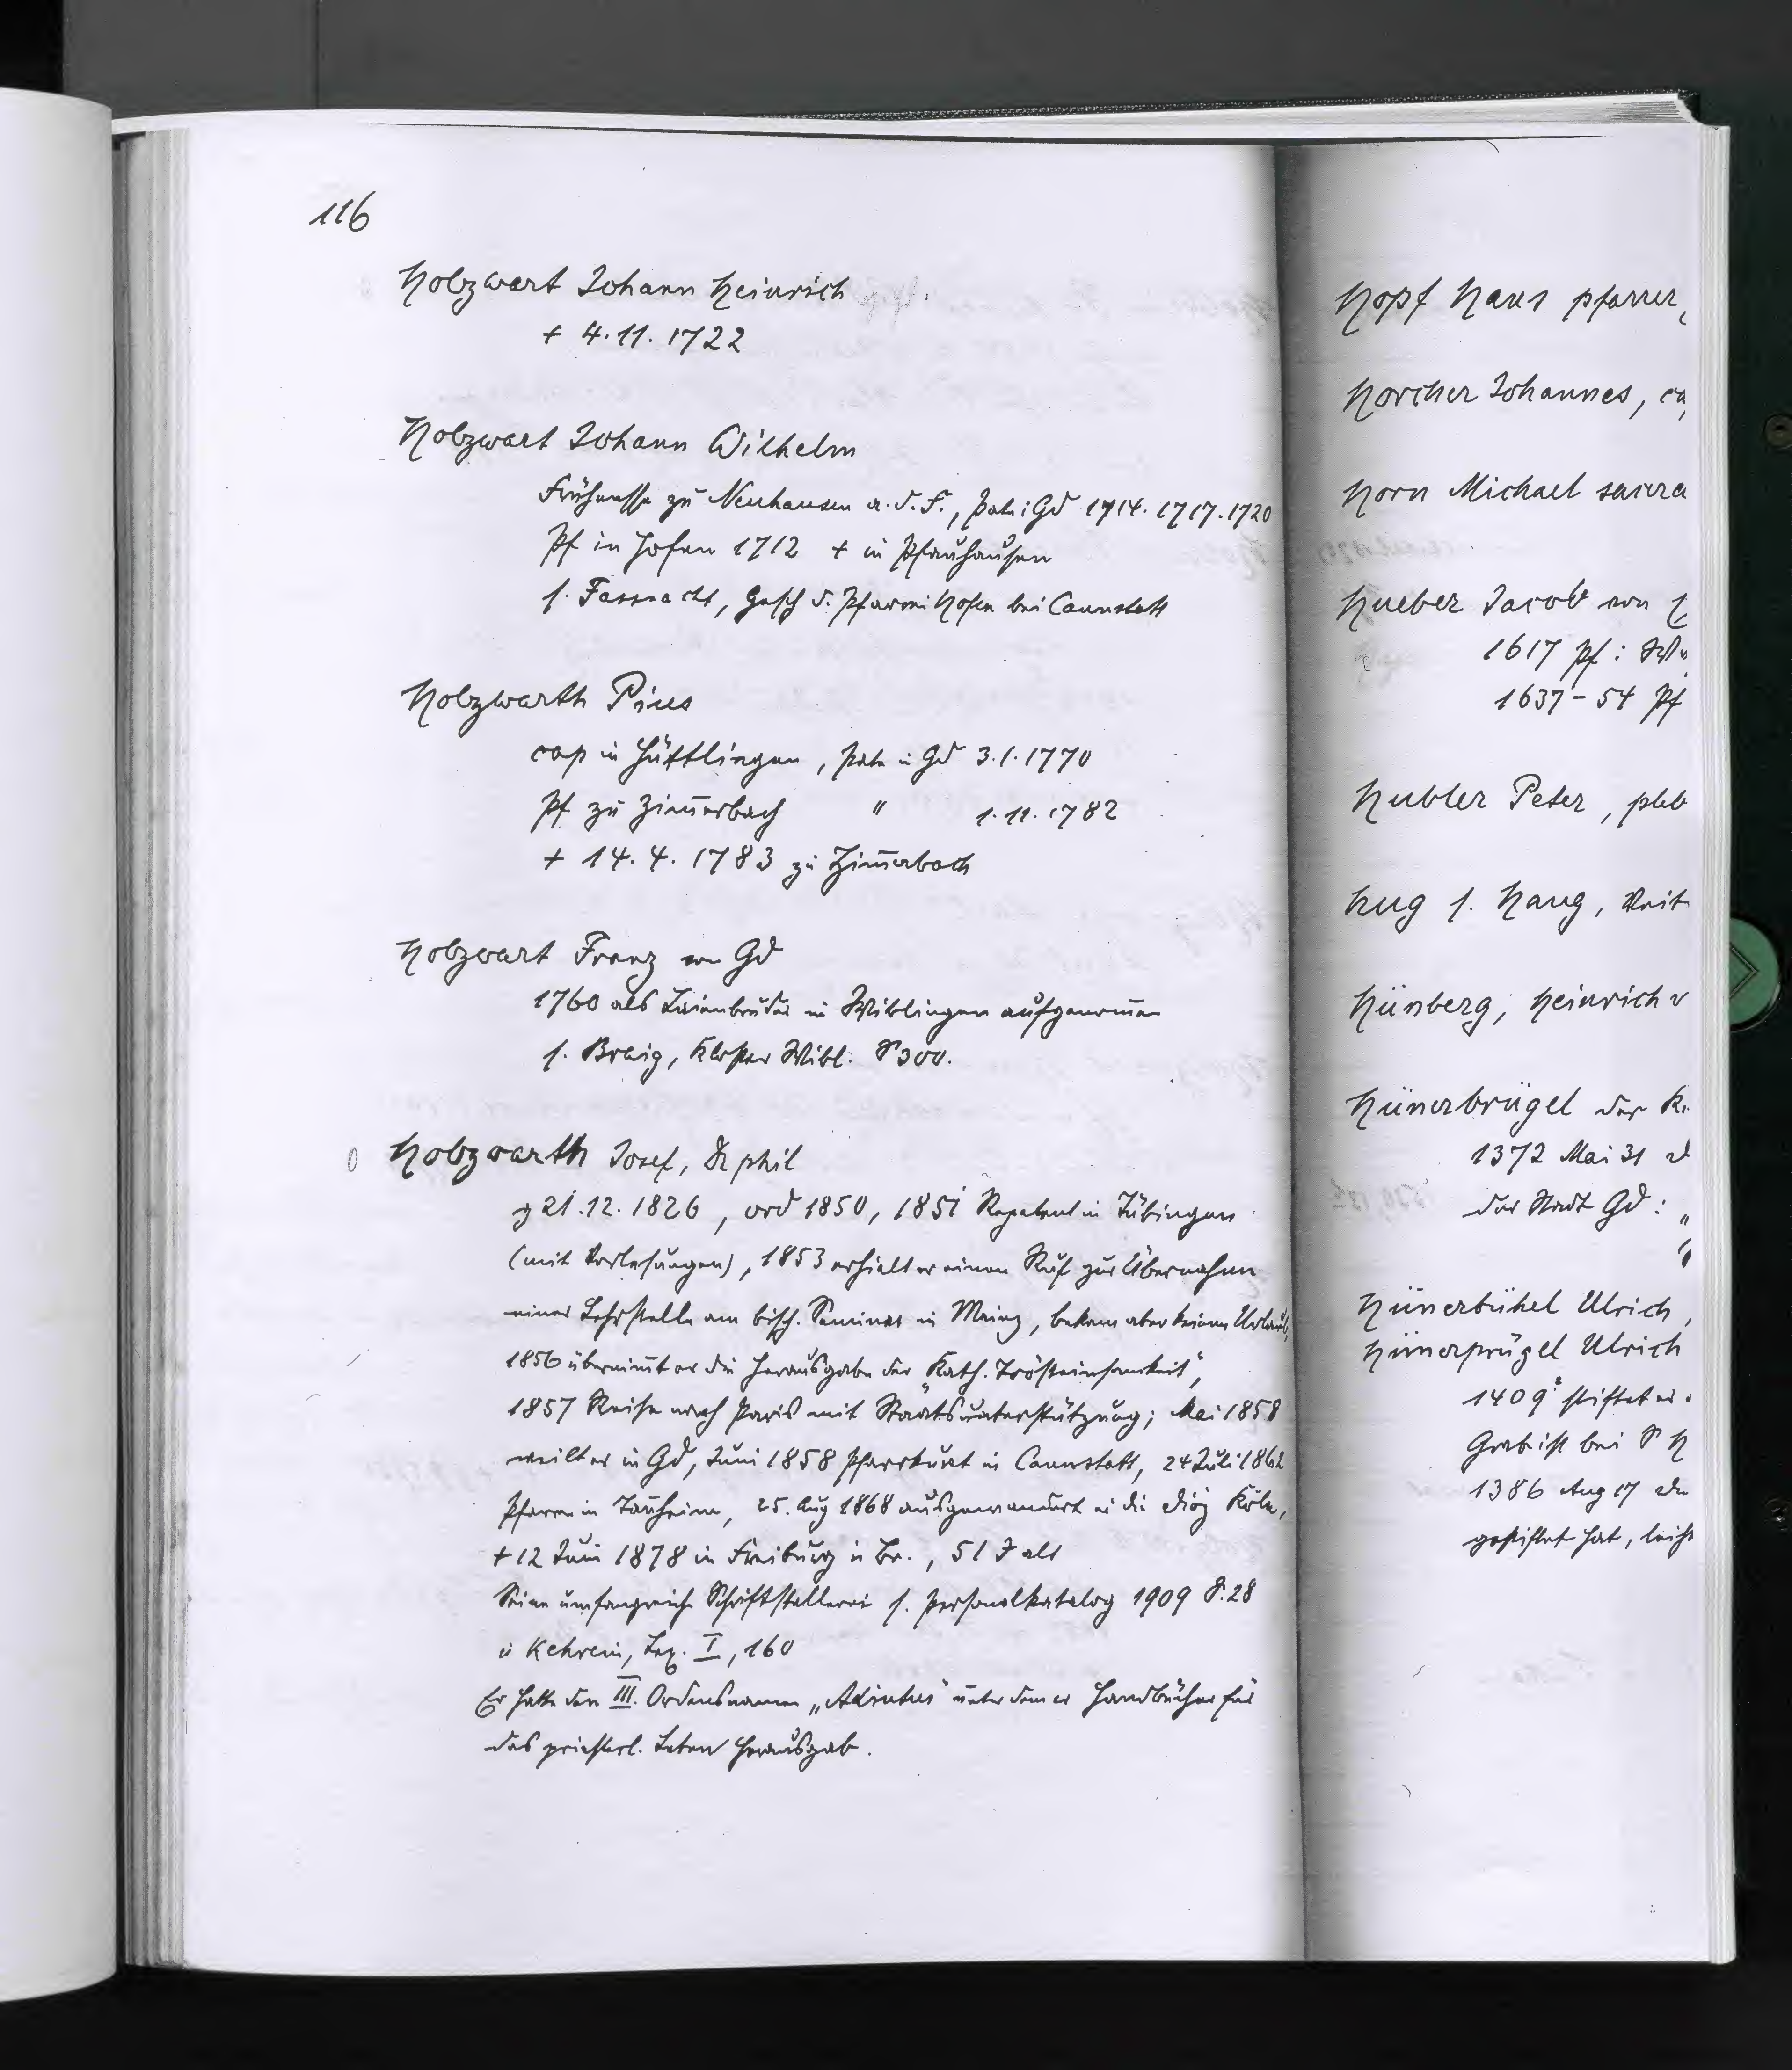 116
Holzwart Johann Heinrich
+ 4.11.1722
Holzwart Johann Wilhelm
Frühmesser zu Neuhausen a.d.F., Pate i Gd 1714. 1717. 1720
Pf in Hofen 1712 + in Pfauhausen
s. Fassnacht, Gesch d. Pfarrei Hofen bei Cannstatt
Holzwarth Pius
cap in Hüttlingen, Pate in Gd 3.1.1770
Pf zu Zim̄erbach " 1.11.1782
+ 14.4.1783 zu Zim̄erbach
Holzwart Franz von Gd
1760 als Laienbruder in Wiblingen aufgenom̄en
s. Braig, Kloster Wibl. S 300.
Holzwarth Josef, Dr phil
g 21.12.1826, ord 1850, 1851 Repetent in Tübingen
(mit Vorlesungen), 1853 erhielt er einen Ruf zur Übernahme
einer Lehrstelle am bisch. Seminar in Mainz, bekam aber keinen Urlaub,
1856 übernim̄t er die Herausgabe der „Kath. Trösteinsamkeit",
1857 Reise nach Paris mit Staatsunterstützung; Mai 1858
weilt er in Gd, Juni 1858 Pfarrkurat in Cannstatt, 24 Juli 1862
Pfarrer in Tauheim, 25. Aug 1868 ausgewandert in die Diöz Köln,
+ 12 Juni 1878 in Freiburg i Br., 51 J alt
Seine umfangreiche Schriftstellerei s. Personalkatalog 1909 S. 28
u Kehrein, Lex. I, 160
Er hatte den III. Ordensnamen „Adiutus" unter dem er Handbücher für
das priesterl. Leben herausgab.
Hopf Hans pfarrer,
Horcher Johannes,
Horn Michael
Hueber Jacob von
1617 Pf:
1637-54 Pf
Hubler Peter, pleb
Hug s. Haug, Veit
Hünberg, Heinrich v
Hünerbrügel der
1372 Mai 31
der Stadt Gd: „
Hünerbühel Ulrich,
Hünerprügel Ulrich
1409 stiftet er
Grab ist bei S
1386 Aug 17
gestiftet hat,